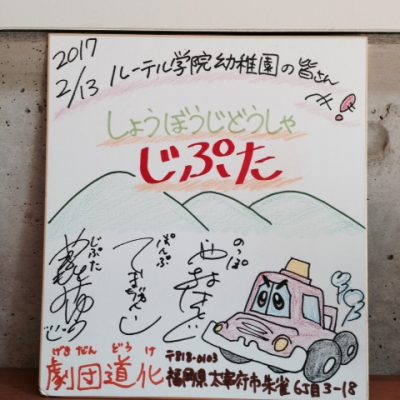 2017
2/13 ルーテル学院幼稚園の皆さん
しょうぼうじどうしゃ
じぷた
じぷた
ぽんぷ
のっぽ
げきだんどうけ
劇団道化
〒818-0103
福岡県太宰府市朱雀6丁目3-18